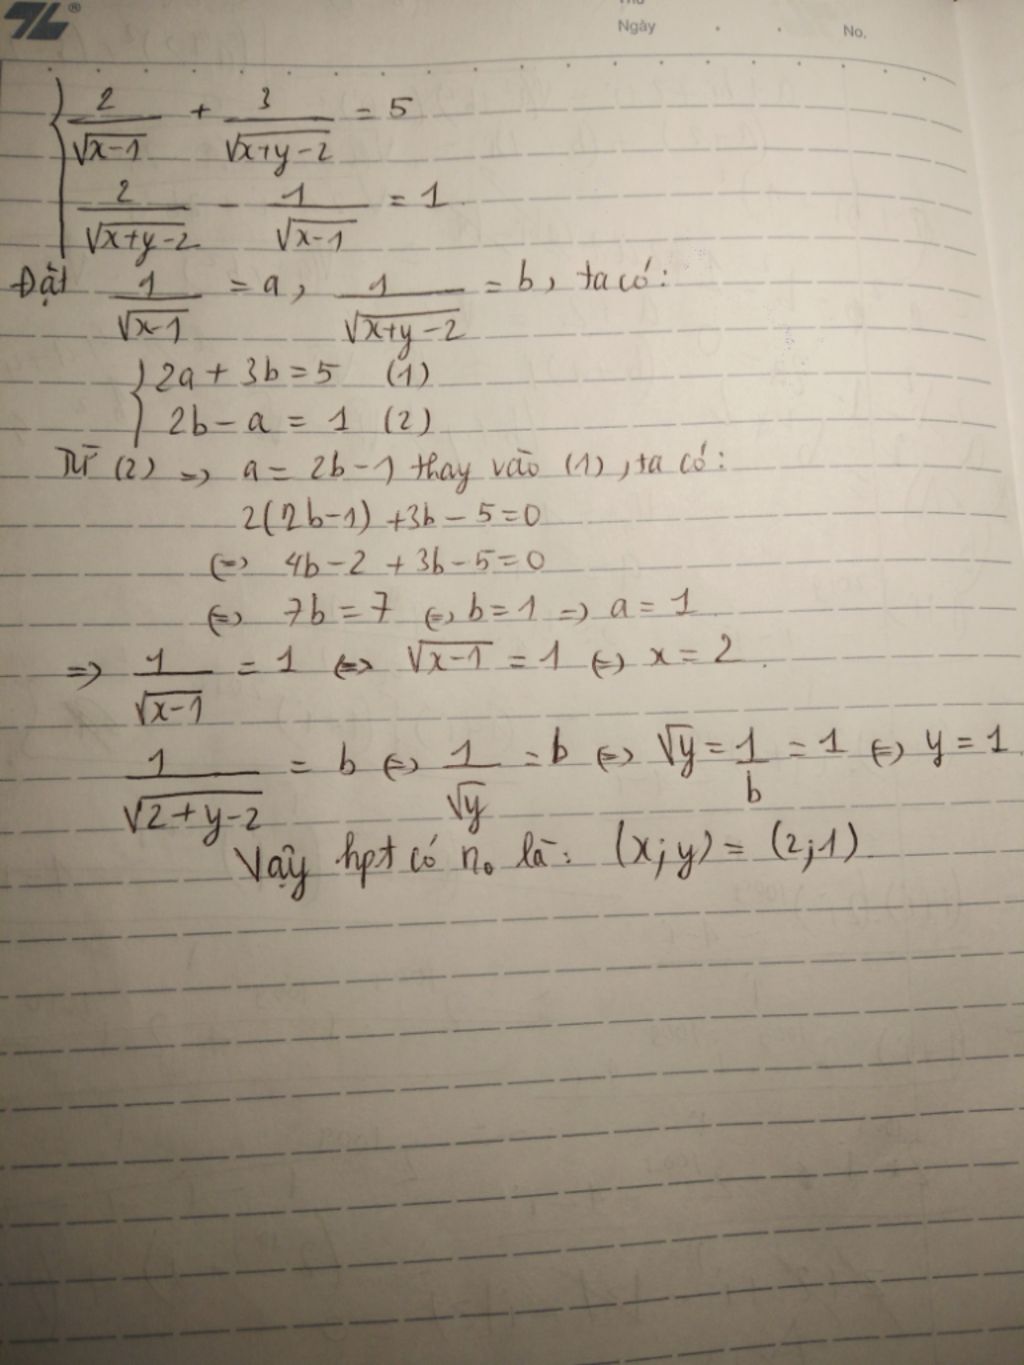 TL®
Thứ
Ngày . . No.
{ 2/√(x-1) + 3/√(x+y-2) = 5
{ 2/√(x+y-2) - 1/√(x-1) = 1
Đặt 1/√(x-1) = a, 1/√(x+y-2) = b, ta có:
{ 2a + 3b = 5 (1)
{ 2b - a = 1 (2)
Từ (2) => a = 2b - 1 thay vào (1), ta có:
2(2b-1) + 3b - 5 = 0
<=> 4b - 2 + 3b - 5 = 0
<=> 7b = 7 <=> b = 1 => a = 1
=> 1/√(x-1) = 1 <=> √(x-1) = 1 <=> x = 2.
1/√(2+y-2) = b <=> 1/√y = b <=> √y = 1/b = 1 <=> y = 1.
Vậy hpt có n₀ là: (x;y) = (2;1)